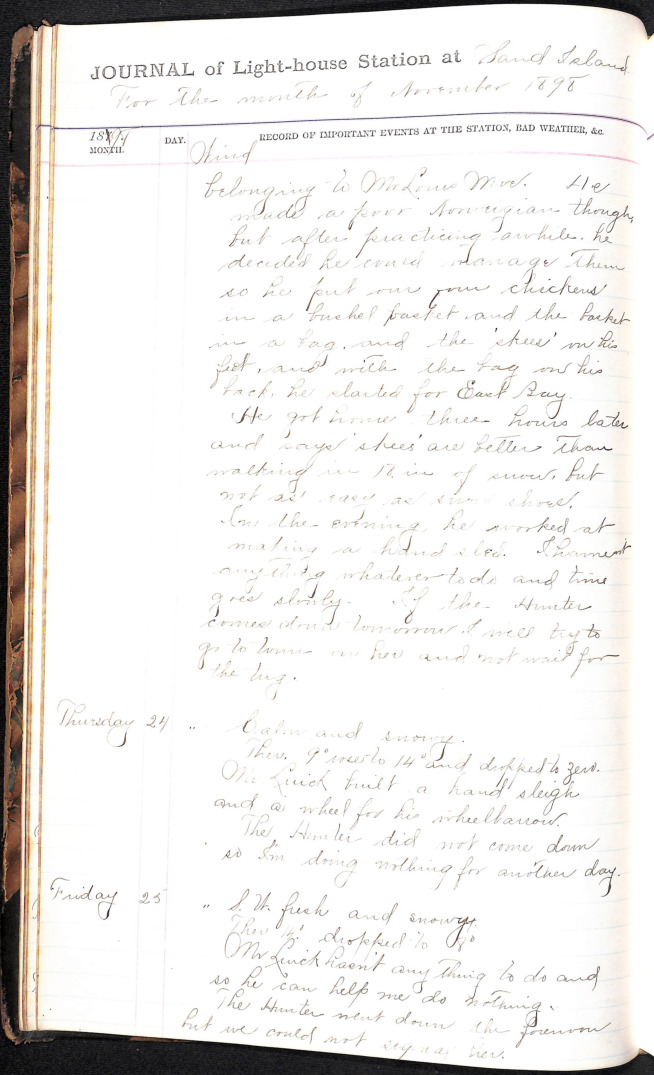 JOURNAL of Light-house Station at Sand Island
For the month of November 1898
MONTH.
DAY.
RECORD OF IMPORTANT EVENTS AT THE STATION, BAD WEATHER, &c.
Wind
belonging to Mr Louis Moe. He
made a poor Norwegian though,
but after practicing awhile, he
decided he could manage them
so he put our four chickens
in a bushel basket and the basket
in a bag, and the 'skees' on his
feet, and with the bag on his
back, he started for East Bay.
He got home three hours later
and says 'skees' are better than
walking in in of snow, but
not as easy as snow shoes.
In the evening he worked at
making a hand sled. I haven't
anything whatever to do and time
goes slowly. If the Hunter
comes down tomorrow I will try to
go to town on her and not wait for
the tug.
Thursday 24 " Calm and snowy.
Ther. 9° rose to 14° and dropped to zero.
Mr Luick built a hand sleigh
and a wheel for his wheelbarrow.
The Hunter did not come down
so I'm doing nothing for another day.
Friday 25 " S.W. fresh and snowy.
Ther dropped to
Mr Luick hasn't any thing to do and
so he can help me do nothing.
The Hunter went down the forenoon
but we could not signal her.